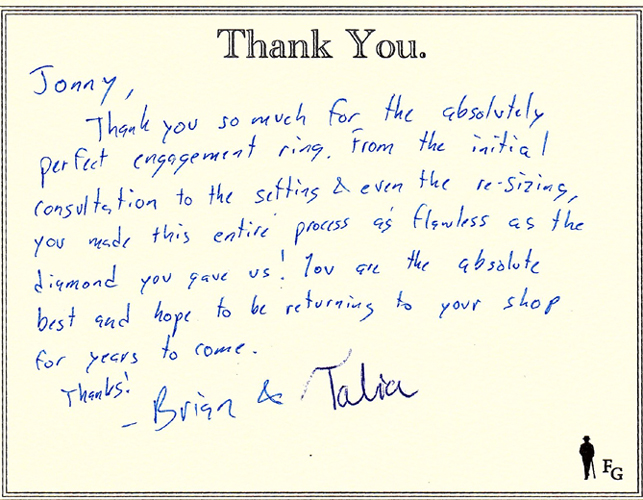 Thank You.
Jonny,
Thank you so much for the absolutely
perfect engagement ring. From the initial
consultation to the setting & even the re-sizing,
you made this entire process as flawless as the
diamond you gave us! You are the absolute
best and hope to be returning to your shop
for years to come.
Thanks!
- Brian & Talia
FG